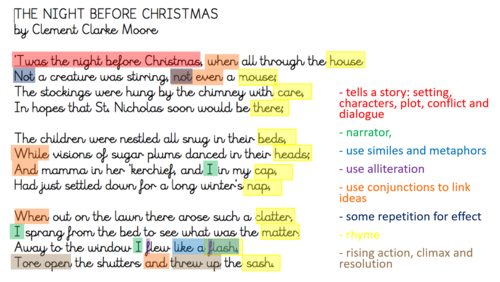 THE NIGHT BEFORE CHRISTMAS
by Clement Clarke Moore
'Twas the night before Christmas, when all through the house
Not a creature was stirring, not even a mouse;
The stockings were hung by the chimney with care,
In hopes that St. Nicholas soon would be there;
The children were nestled all snug in their beds,
While visions of sugar plums danced in their heads;
And mamma in her 'kerchief, and I in my cap,
Had just settled down for a long winter's nap,
When out on the lawn there arose such a clatter,
I sprang from the bed to see what was the matter.
Away to the window I flew like a flash,
Tore open the shutters and threw up the sash.
- tells a story: setting,
characters, plot, conflict and
dialogue
- narrator,
- use similes and metaphors
- use alliteration
- use conjunctions to link
ideas
- some repetition for effect
- rhyme
- rising action, climax and
resolution